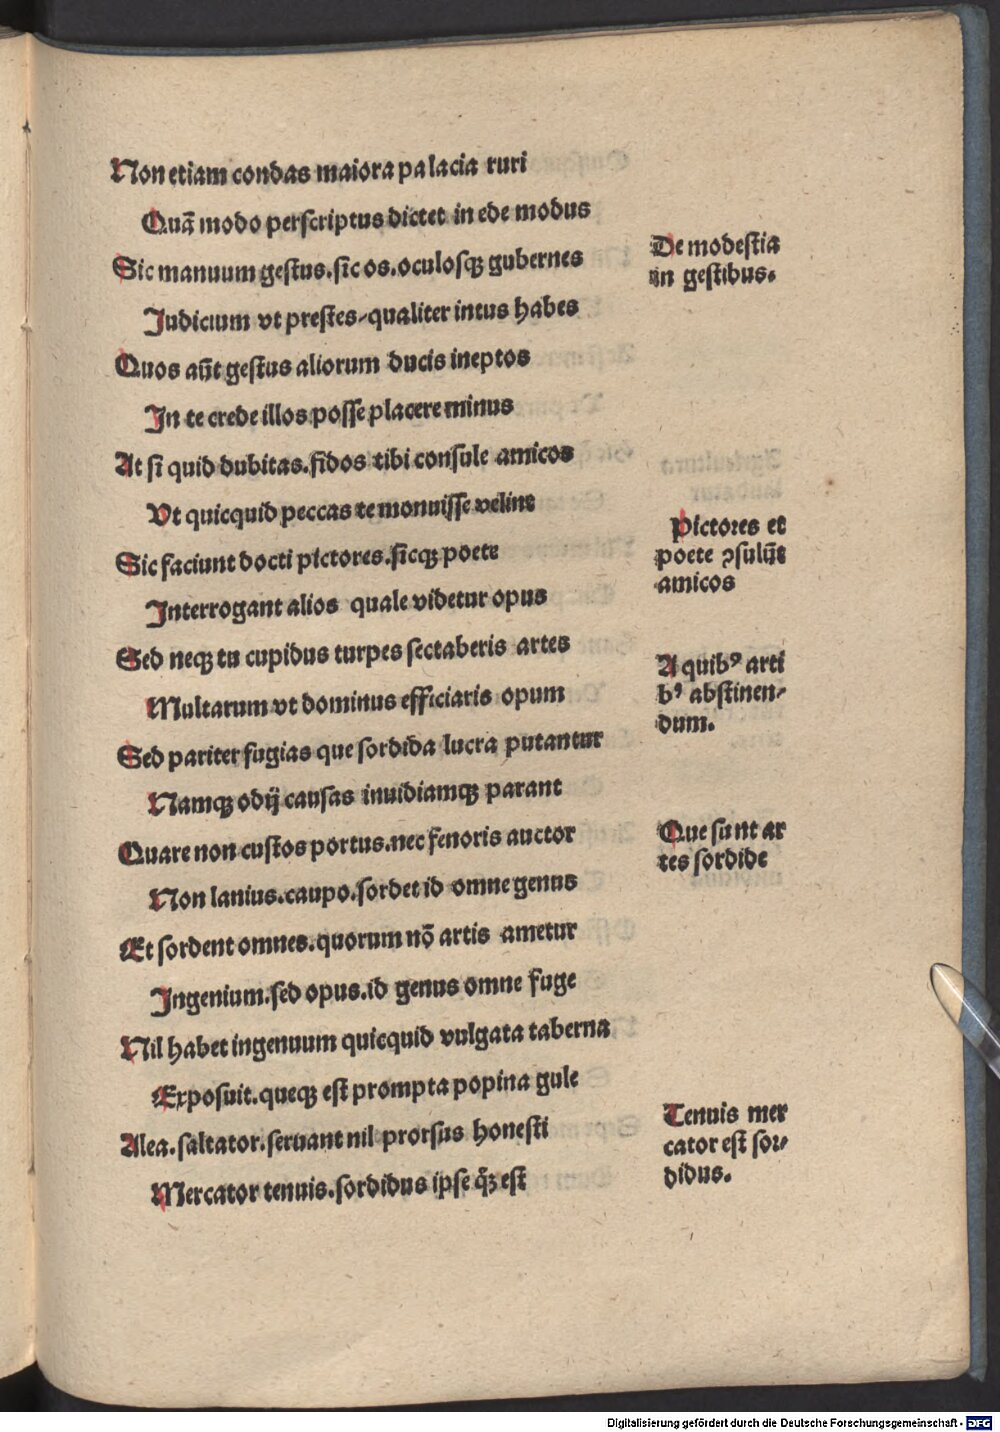 Non etiam condas maiora palacia ruri
Quā modo perscriptus dictet in ede modus
Sic manuum gestus.sic os.oculosqꝫ gubernes
Iudicium vt prestes/qualiter intus habes
Quos aūt gestus aliorum ducis ineptos
In te crede illos posse placere minus
At si quid dubitas.fidos tibi consule amicos
Vt quicquid peccas te monuisse velint
Sic faciunt docti pictores.sicqꝫ poete
Interrogant alios quale videtur opus
Sed neqꝫ tu cupidus turpes sectaberis artes
Multarum vt dominus efficiaris opum
Sed pariter fugias que sordida lucra putantur
Namqꝫ odij causas inuidiamqꝫ parant
Quare non custos portus.nec fenoris auctor
Non lanius.caupo.sordet id omne genus
Et sordent omnes.quorum nō artis ametur
Ingenium.sed opus.id genus omne fuge
Nil habet ingenuum quicquid vulgata taberna
Exposuit.queqꝫ est prompta popina gule
Alea.saltator.seruant nil prorsus honesti
Mercator tenuis.sordidus ipse q̃ꝫ est
De modestia
in gestibus.
Pictores et
poete ꝯsulūt
amicos
A quibꝰ arti
bꝰ abstinen/
dum.
Que sunt ar
tes sordide
Tenuis mer
cator est sor/
didus.
Digitalisierung gefördert durch die Deutsche Forschungsgemeinschaft - DFG